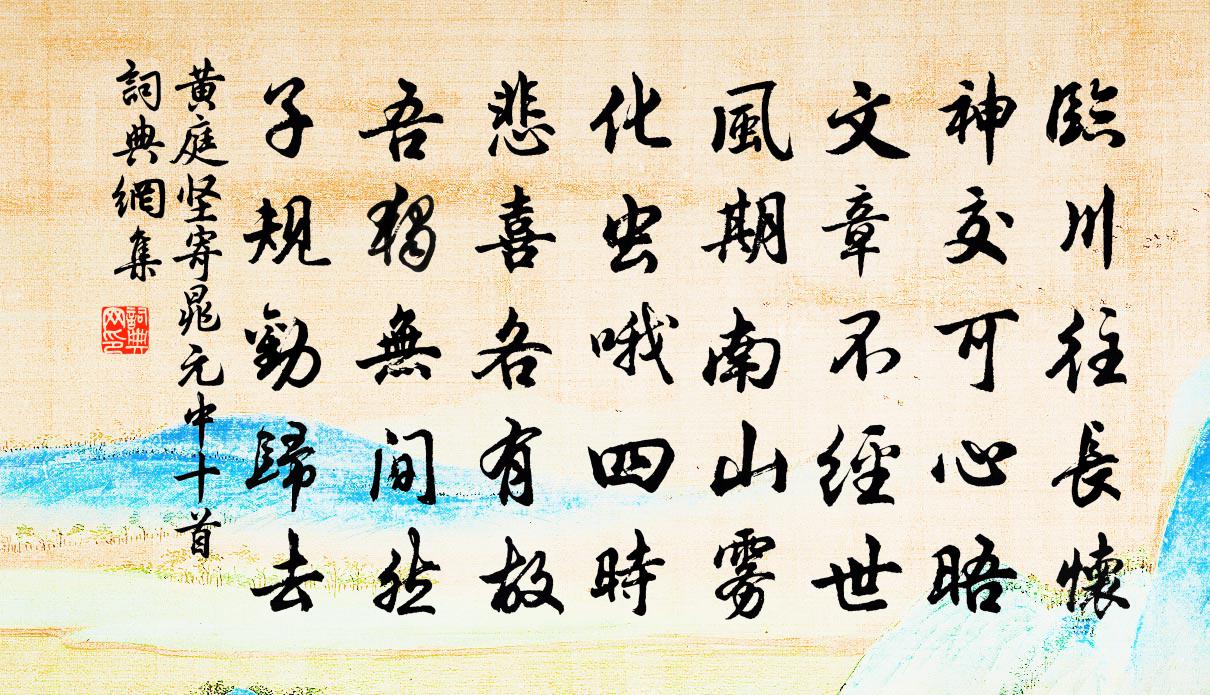 臨川往長懷
神交可心晤
文章不經世
風期南山雾
化虫哦四時
悲喜各有故
吾獨無間然
子規勸歸去
黃庭坚寄晁元中十首
詞典網集
詞典網印